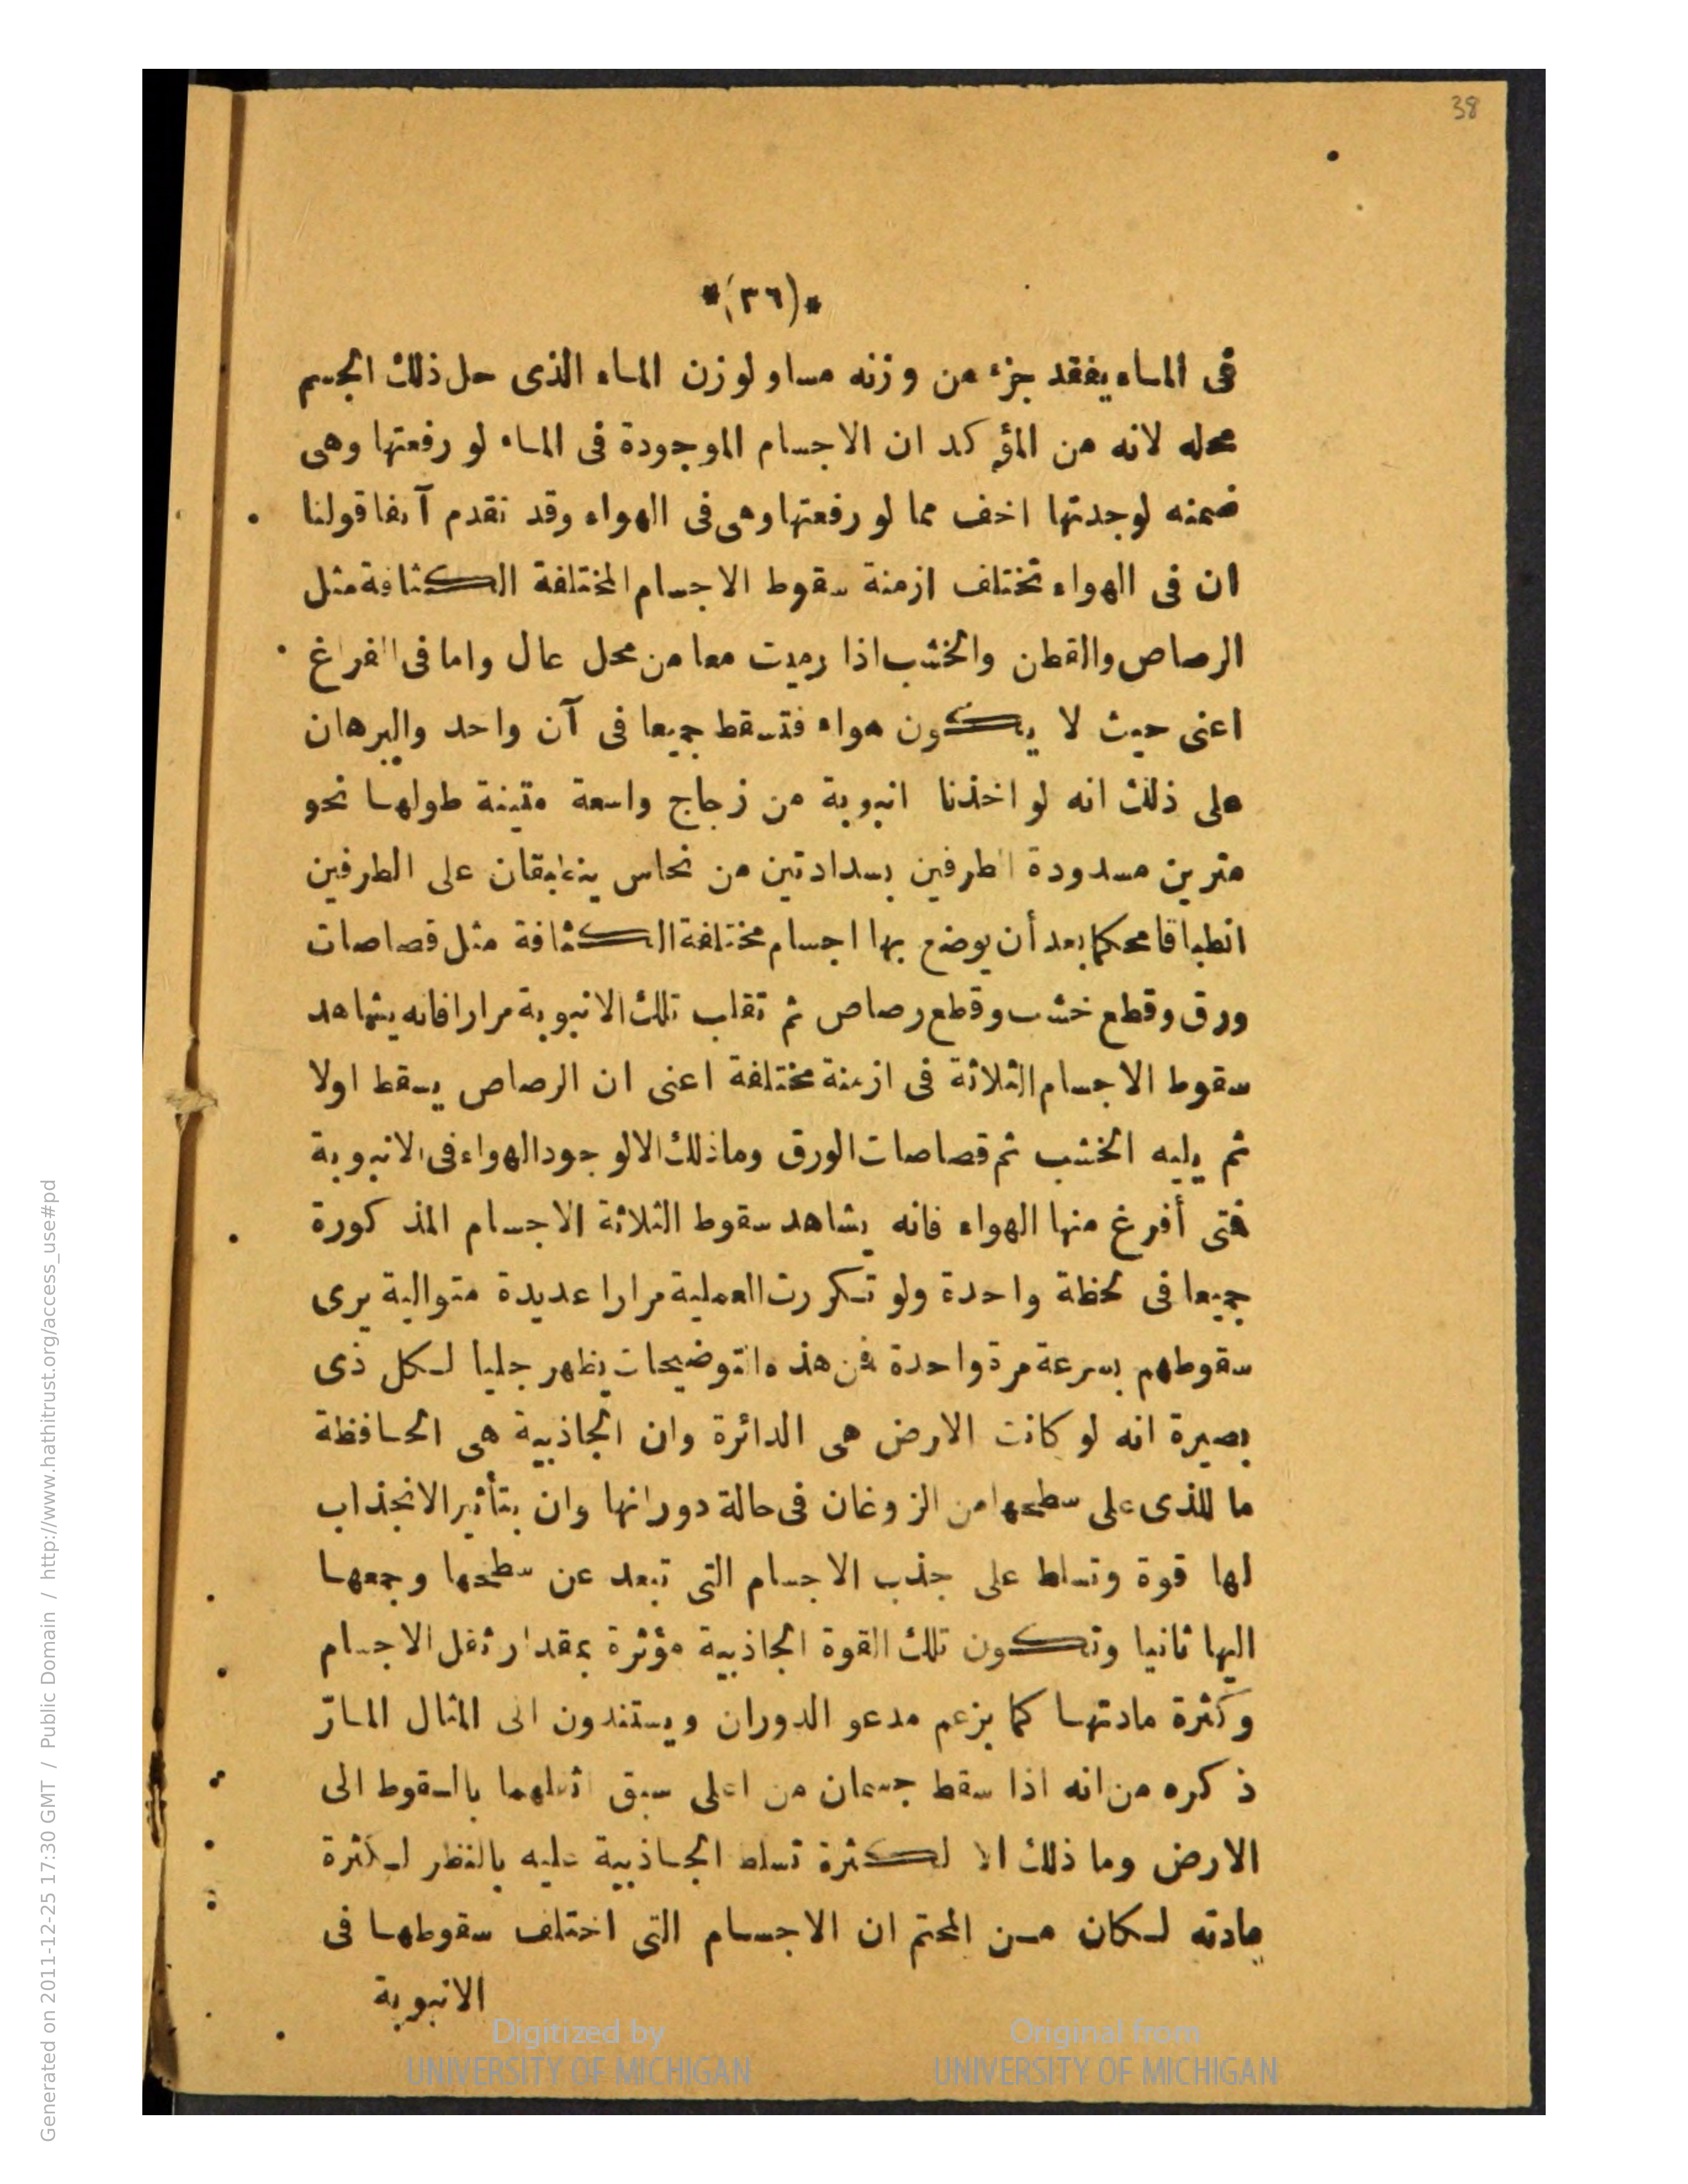 38
*(٣٦)*
فى الماء يفقد جزء من وزنه مساو لوزن الماء الذى حل ذلك الجسم
محله لانه من المؤكد ان الاجسام الموجودة فى الماء لو رفعتها وهى
ضمنه لوجدتها اخف مما لو رفعتها وهى فى الهواء وقد تقدم آنفا قولنا
ان فى الهواء تختلف ازمنة سقوط الاجسام المختلفة الكثافة مثل
الرصاص والقطن والخشب اذا رميت معا من محل عال واما فى الفراغ
اعنى حيث لا يكون هواء فتسقط جميعا فى آن واحد والبرهان
على ذلك انه لو اخذنا انبوبة من زجاج واسعة متينة طولها نحو
مترين مسدودة الطرفين بسدادتين من نحاس ينطبقان على الطرفين
انطباقا محكما بعد أن يوضع بها اجسام مختلفة الكثافة مثل قصاصات
ورق وقطع خشب وقطع رصاص ثم تقلب تلك الانبوبة مرارا فانه يشاهد
سقوط الاجسام الثلاثة فى ازمنة مختلفة اعنى ان الرصاص يسقط اولا
ثم يليه الخشب ثم قصاصات الورق وما ذلك الا لوجود الهواء فى الانبوبة
فتى أفرغ منها الهواء فانه يشاهد سقوط الثلاثة الاجسام المذكورة
جميعا فى لحظة واحدة ولو تكررت العملية مرارا عديدة متوالية يرى
سقوطهم بسرعة مرة واحدة فن هذه التوضيحات يظهر جليا لكل ذى
بصيرة انه لو كانت الارض هى الدائرة وان الجاذبية هى الحافظة
ما للذى على سطحها من الزوغان فى حالة دورانها وان بتأثير الانجذاب
لها قوة وتسلط على جذب الاجسام التى تبعد عن سطحها وجمعها
اليها ثانيا وتكون تلك القوة الجاذبية مؤثرة بمقدار ثقل الاجسام
وكثرة مادتها كما يزعم مدعو الدوران ويستندون الى المثال المارّ
ذكره من انه اذا سقط جسمان من اعلى سبق اثقلهما بالسقوط الى
الارض وما ذلك الا لكثرة تسلط الجاذبية عليه بالنظر لكثرة
مادته لكان من المحتم ان الاجسام التى اختلف سقوطها فى
الانبوبة
Digitized by
UNIVERSITY OF MICHIGAN
Original from
UNIVERSITY OF MICHIGAN
Generated on 2011-12-25 17:30 GMT / Public Domain / http://www.hathitrust.org/access_use#pd